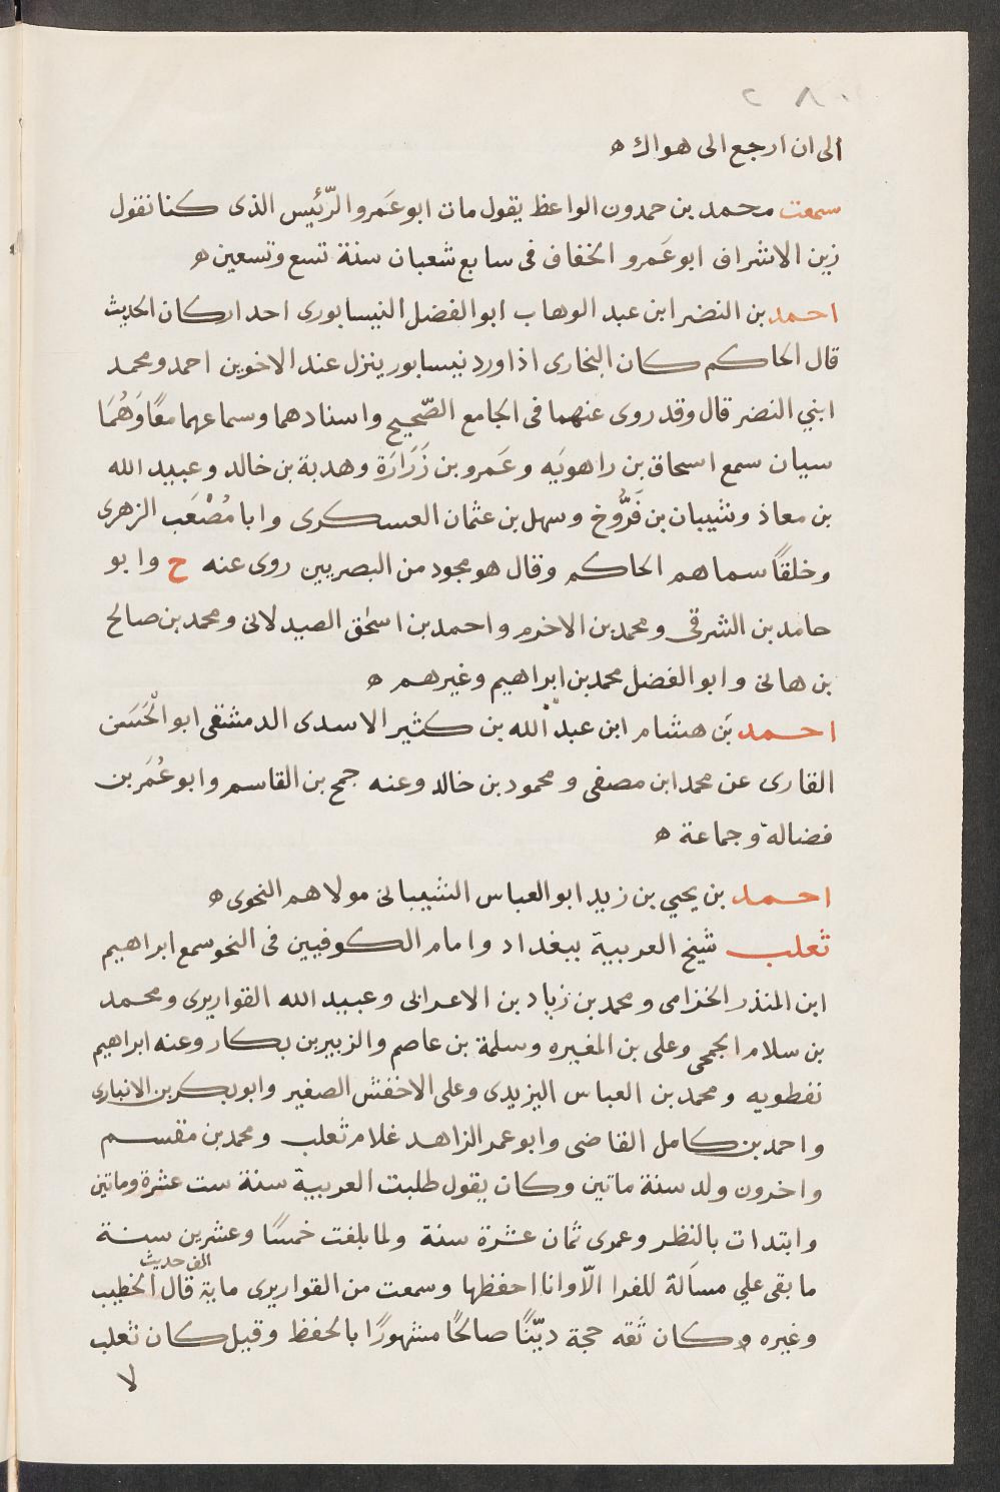 ٢٨٠
الى ان ارجع الى هواك ه
سمعت محمد بن حمدون الواعظ يقول مات ابو عَمرو الرّئيس الذى كنا نقول
زين الاشراف ابو عَمرو الخفاف فى سابع شعبان سنة تسع وتسعين ه
احمد بن النضر ابن عبد الوهاب ابو الفضل النيسابورى احد اركان الحديث
قال الحاكم كان البخارى اذا ورد نيسابور ينزل عند الاخوين احمد ومحمد
ابني النضر قال وقد روى عنهما فى الجامع الصّحيح واسنادهما وسماعهما معًا وَهُمَا
سيان سمع اسحاق بن راهويَه وعَمرو بن زَرَارَة وهدبة بن خالد وعبيد الله
بن معاذ وشيبان بن فَرُّوخ وسهل بن عثمان العسكرى وابا مُصْعَب الزهرى
وخلقًا سماهم الحاكم وقال هو مجود من البصريين روى عنه ح وابو
حامد بن الشرقى ومحمد بن الاخرم واحمد بن اسحٰق الصيدلانى ومحمد بن صالح
بن هانى وابو الفضل محمد بن ابراهيم وغيرهم ه
احمد بَن هشام ابن عبد الله بن كثير الاسدى الدمشقى ابو الْحَسَن
القارى عن محمد ابن مصفى ومحمود بن خالد وعنه جمح بن القاسم وابو عُمَر بن
فضالة وجماعة ه
احمد بن يحيي بن زيد ابو العباس الشيبانى مولاهم النحوى ه
ثعلب شيخ العربية ببغداد وامام الكوفيين فى النحو سمع ابراهيم
ابن المنذر الخزامى ومحمد بن زياد بن الاعرابى وعبيد الله القواريرى ومحمد
بن سلام الجمحى وعلى بن المغيره وسلمة بن عاصم والزبير بن بكار وعنه ابراهيم
نفطويه ومحمد بن العباس اليزيدى وعلى الاخفش الصغير وابو بكر بن الانبارى
واحمد بن كامل القاضى وابو عمر الزاهد غلام ثعلب ومحمد بن مقسم
واخرون ولد سنة ماتين وكان يقول طلبت العربية سنة ست عشرة وماتين
وابتدات بالنظر وعمرى ثمان عشرة سنة ولما بلغت خمسًا وعشرين سنة
ما بقى علي مسألة للفرا الّا وانا احفظها وسمعت من القواريرى ماية الف حديث قال الخطيب
وغيره وكان ثقه حجة ديّنًا صالحًا مشهورًا بالحفظ وقيل كان ثعلب
لا